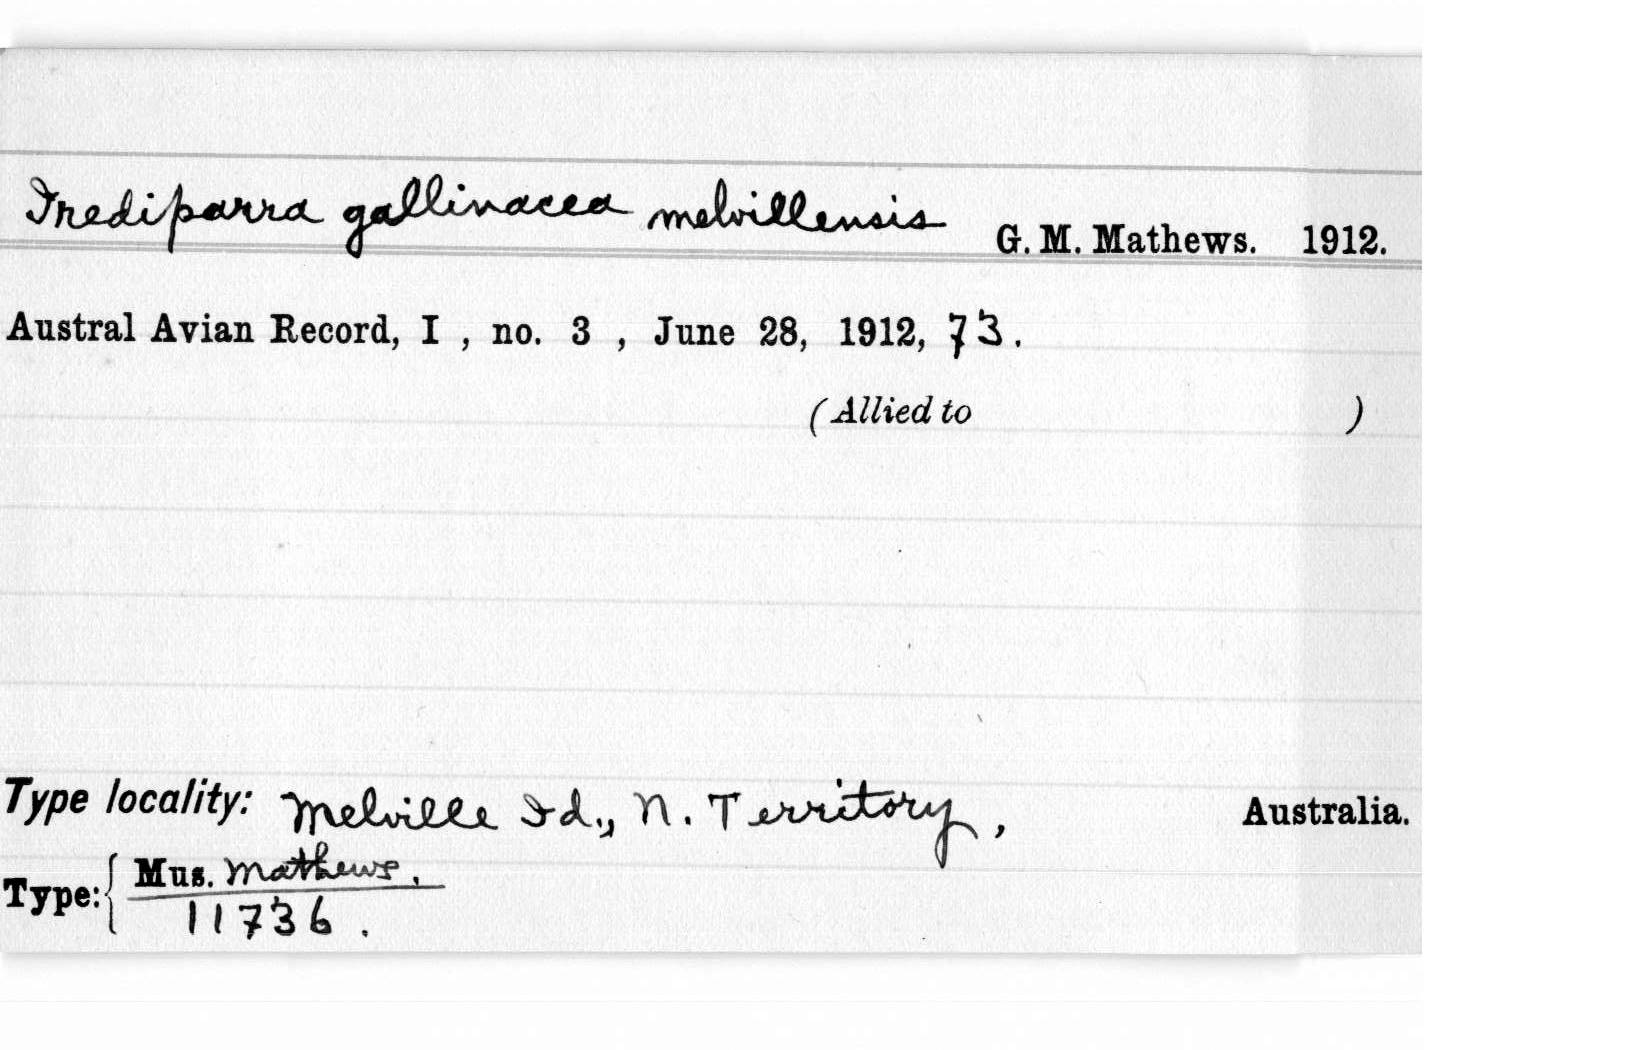 Irediparra gallinacea melvillensis G. M. Mathews. 1912.
Austral Avian Record, I , no. 3 , June 28, 1912, 73.
(Allied to )
Type locality: Melville Id., N. Territory, Australia.
Type: { Mus. Mathews.
11736.